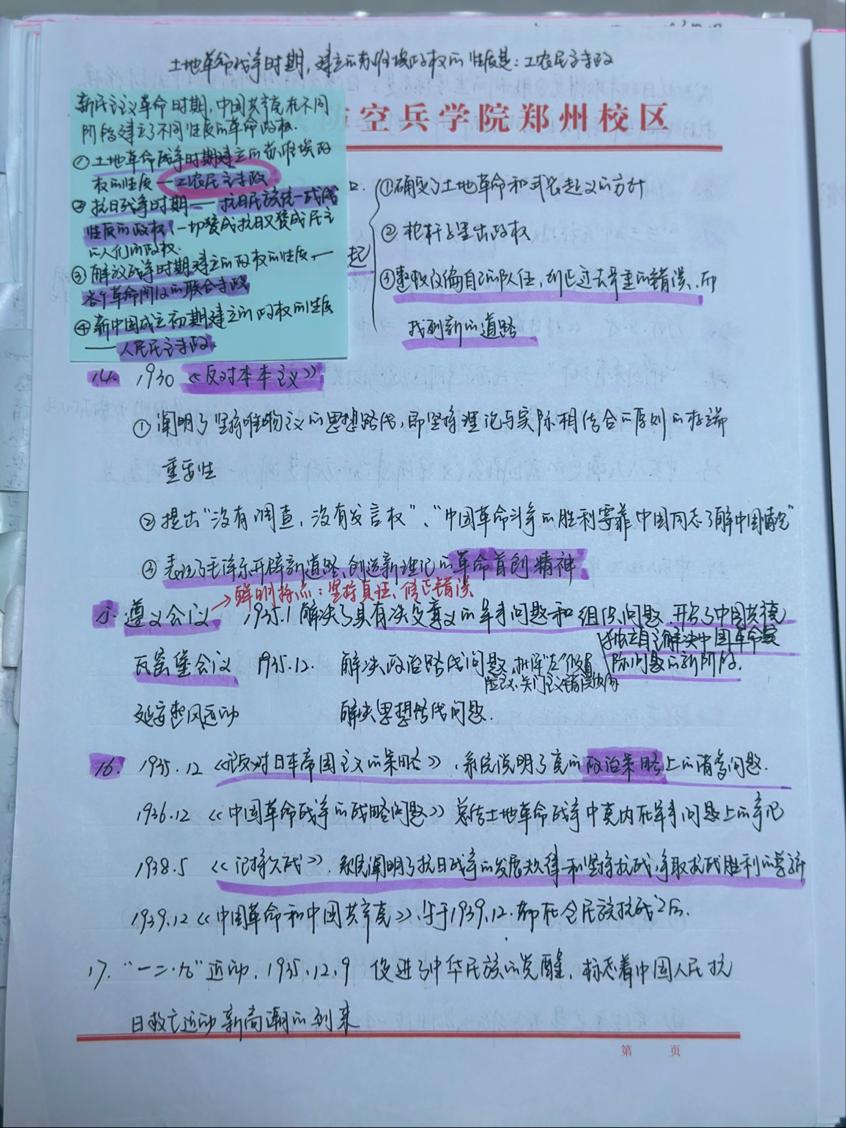 土地革命战争时期,建立的苏维埃政权的性质是:工农民主专政
空兵学院郑州校区
新民主主义革命时期,中国共产党在不同
阶段建立了不同性质的革命政权.
①土地革命战争时期建立的苏维埃政
权的性质—工农民主专政
②抗日战争时期——抗日民族统一战线
性质的政权,一切赞成抗日又赞成民主
的人们的政权.
③解放战争时期建立的政权的性质—
各个革命阶级的联合专政
④新中国成立初期建立的政权的性质
——人民民主专政
①确定了土地革命和武装起义的方针
②枪杆子里出政权
起
纠正过去严重的错误,而
找到新的道路
14. 1930《反对本本主义》
①阐明了坚持唯物主义的思想路线,即坚持理论与实际相结合的原则的极端
重要性
②提出“没有调查,没有发言权”、“中国革命斗争的胜利要靠中国同志了解中国情况”
③表现了毛泽东开辟新道路、创造新理论的革命首创精神
→鲜明特点:坚持真理、修正错误
15. 遵义会议 1935.1 解决了具有决定意义的军事问题和组织问题,开启了中国共产党
独立自主解决中国革命实
际问题的新阶段.
瓦窑堡会议 1935.12. 解决政治路线问题,批评“左”倾冒
险主义、关门主义错误
延安整风运动 解决思想路线问题.
16. 1935.12《论反对日本帝国主义的策略》,系统说明了党的政治策略上的诸多问题.
1936.12《中国革命战争的战略问题》总结土地革命战争中党内在军事问题上的争论
1938.5《论持久战》,系统阐明了抗日战争的发展规律和坚持抗战、争取抗战胜利的
1939.12《中国革命和中国共产党》,写于1939.12.
17. “一二·九”运动,1935.12.9 促进了中华民族的觉醒,标志着中国人民抗
日救亡运动新高潮的到来
第 页